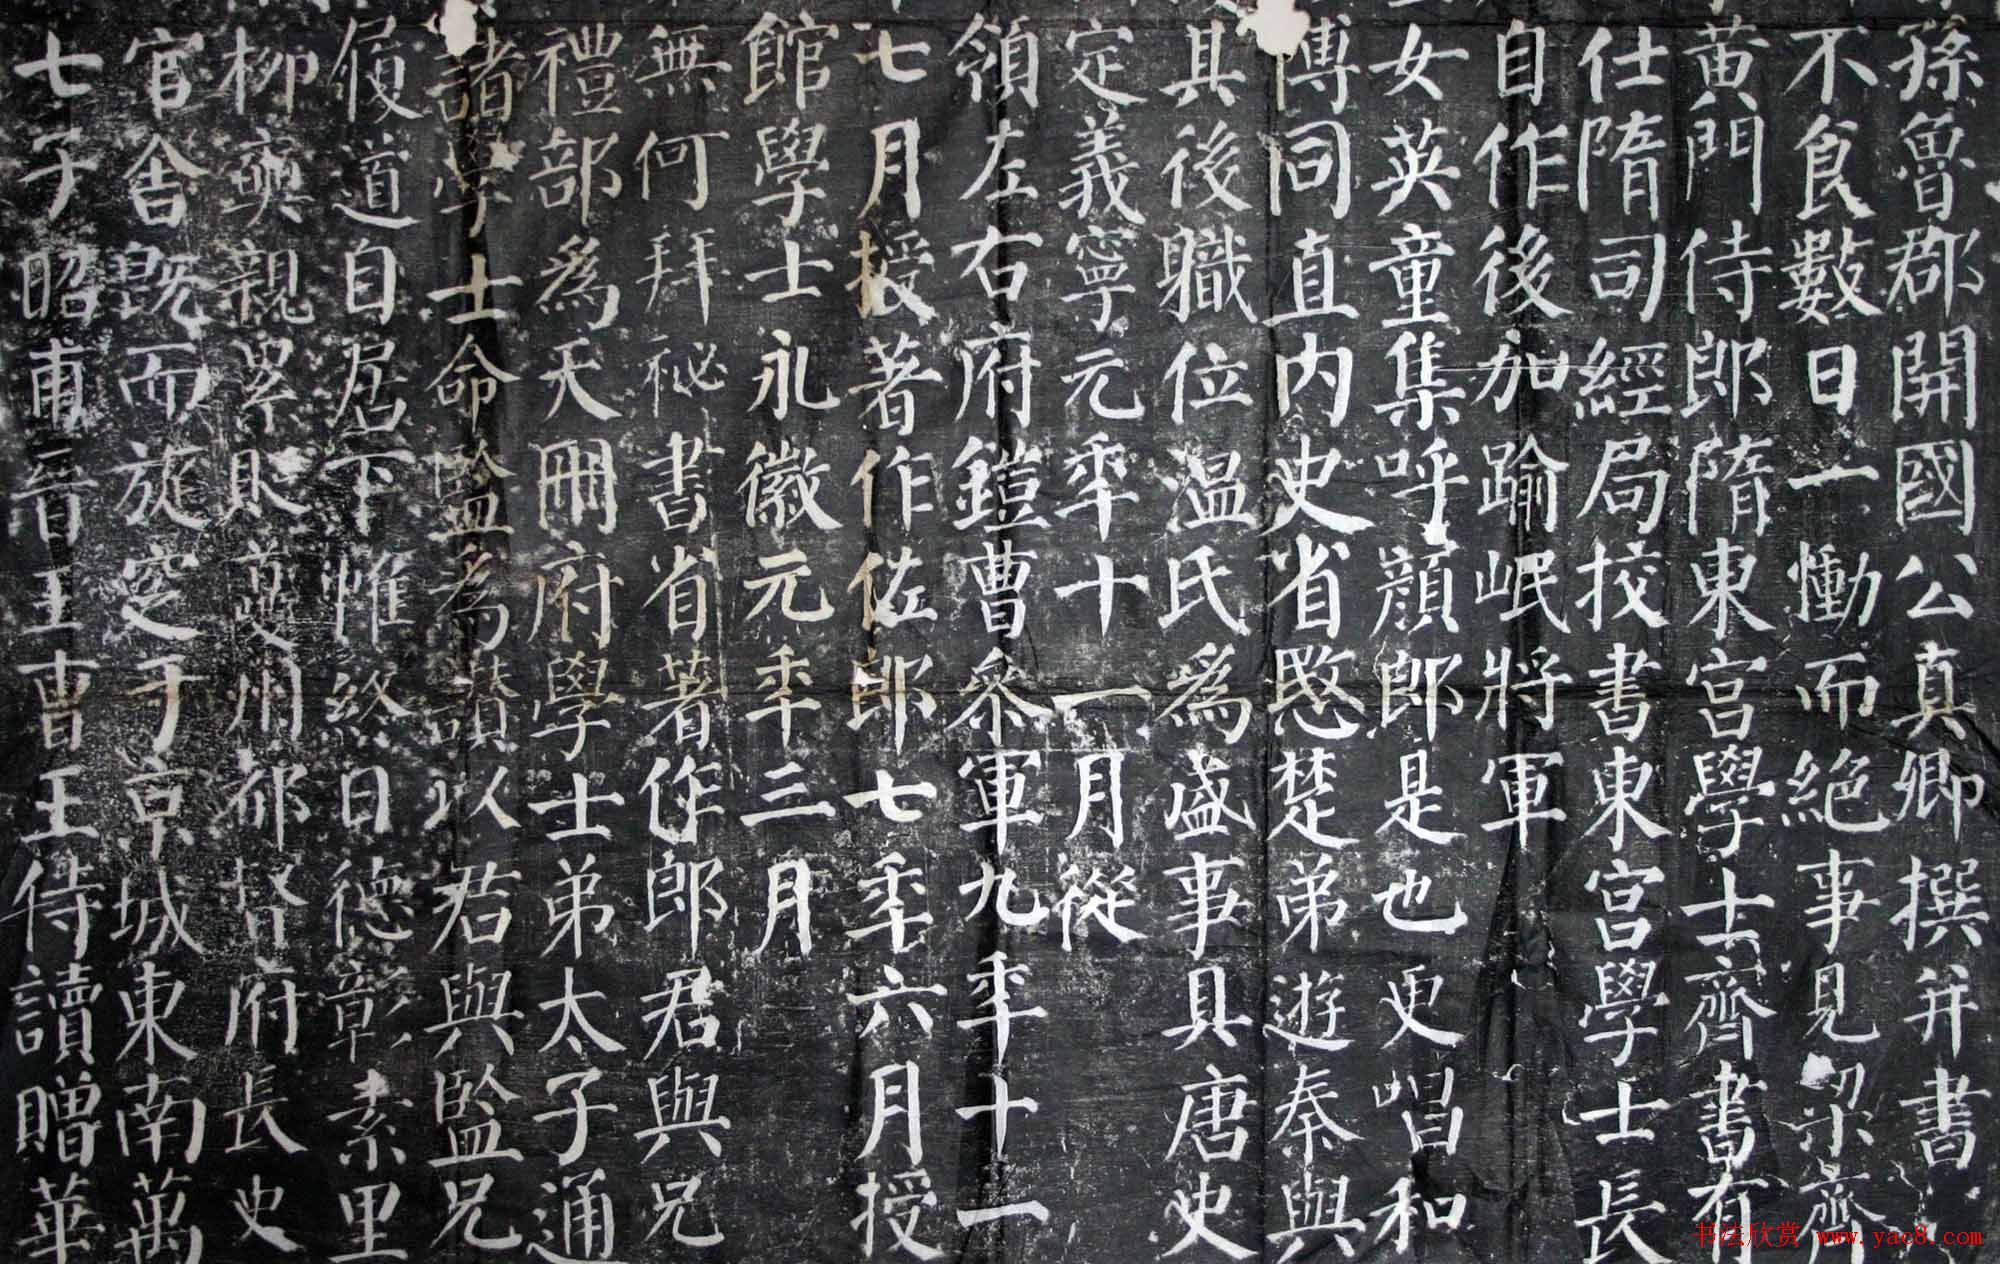 孫魯郡開國公真卿撰并書
不食數日一慟而絶事見梁齊
黄門侍郎隋東宫學士齊書有
仕隋司經局挍書東宫學士長
自作後加踰岷將軍
女英童集呼顔郎是也更唱和
博同直内史省愍楚弟遊秦與
具後職位温氏爲盛事具唐史
定義寧元年十一月從
領左右府鎧曹參軍九年十一
七月授著作佐郎七年六月授
館學士永徽元年三月
無何拜祕書省著作郎君與兄
禮部爲天冊府學士弟太子通
諸學士命監爲讚以君與監兄
履道自居下帷終日德彰素里
柳奭親累貶夔州都督府長史
官舍既而旋窆于京城東南萬
七子昭甫晋王曹王侍讀贈華
书法欣赏 www.yac8.com